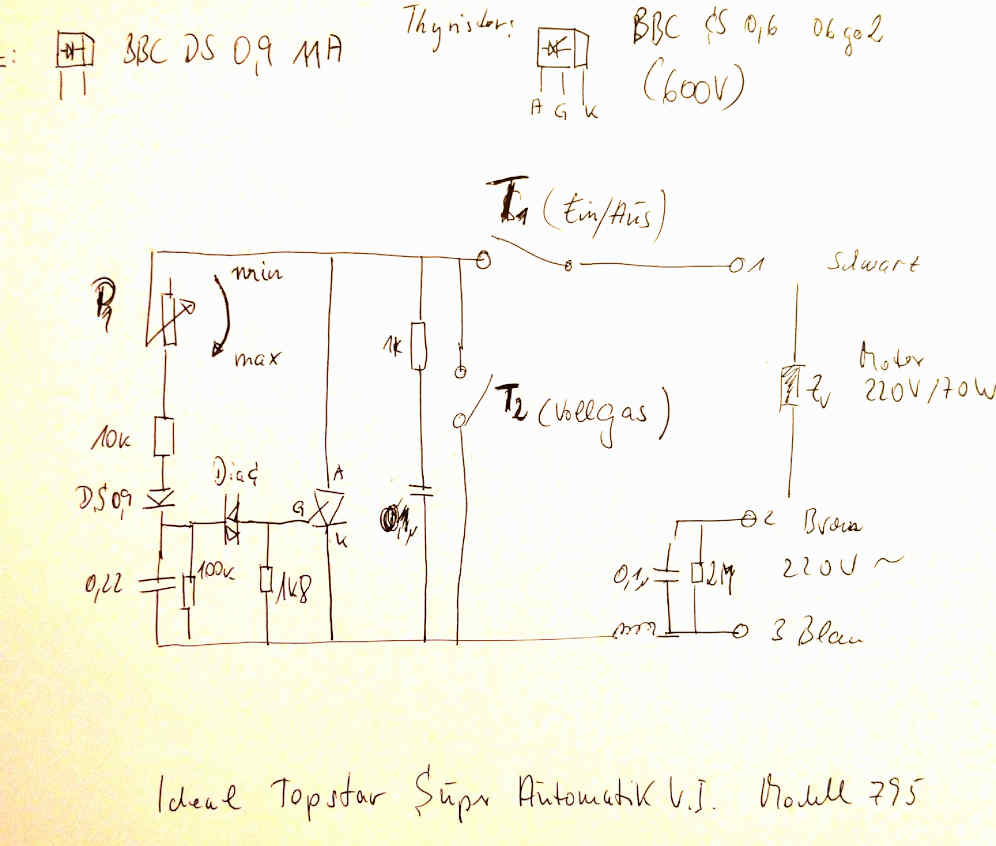 BBC DS 0,9 11A
Thyristor:
BBC CS 0,6 06 go2
(600V)
A G K
T1 (Ein/Aus)
1 Schwarz
P1
min
max
1K
T2 (Vollgas)
Motor
Zv 220V/70W
10K
Diac
DS 0,9
A
G
K
0,1µ
2 Braun
220V ~
0,22
100K
1K8
0,1µ
2M
3 Blau
Ideal Topstar Super Automatik V.I. Modell 795